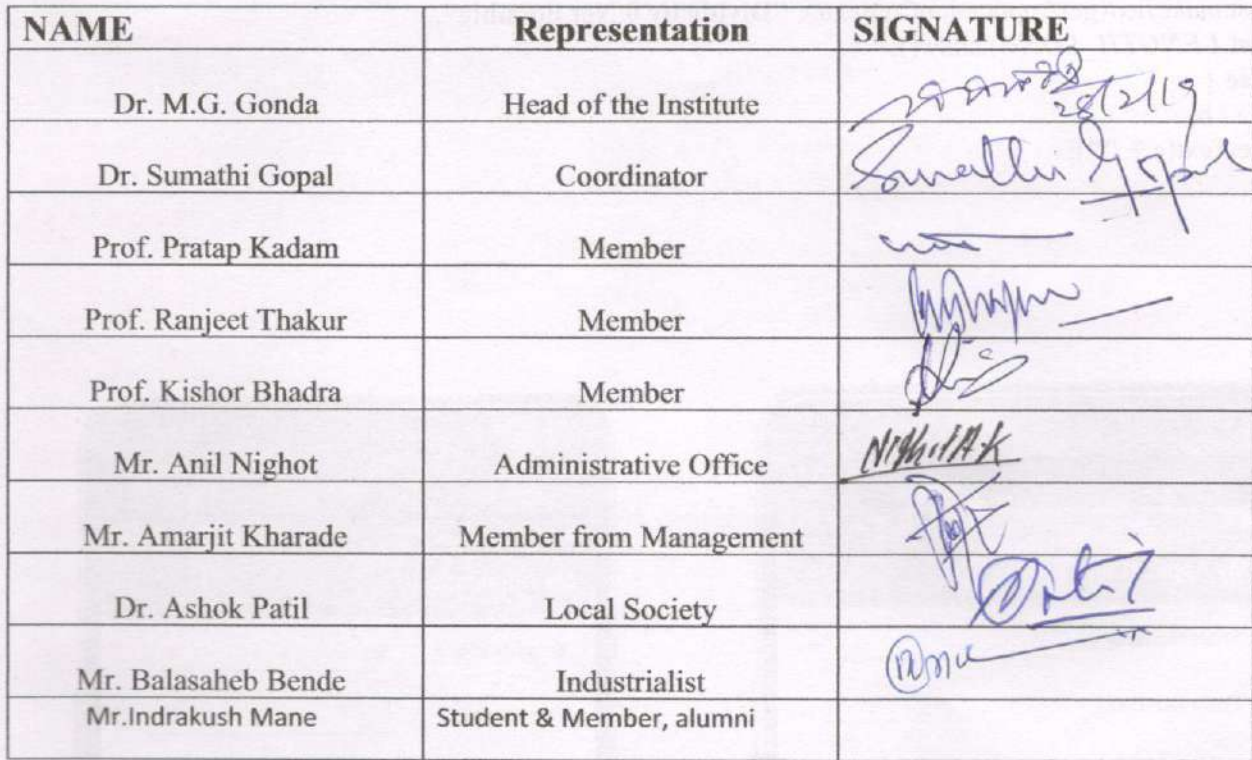 NAME Representation SIGNATURE
Dr. M.G. Gonda Head of the Institute
28/2/19
Dr. Sumathi Gopal Coordinator Sumathi Gopal
Prof. Pratap Kadam Member
Prof. Ranjeet Thakur Member
Prof. Kishor Bhadra Member
Mr. Anil Nighot Administrative Office NighotAK
Mr. Amarjit Kharade Member from Management
Dr. Ashok Patil Local Society
Mr. Balasaheb Bende Industrialist
Mr.Indrakush Mane Student & Member, alumni